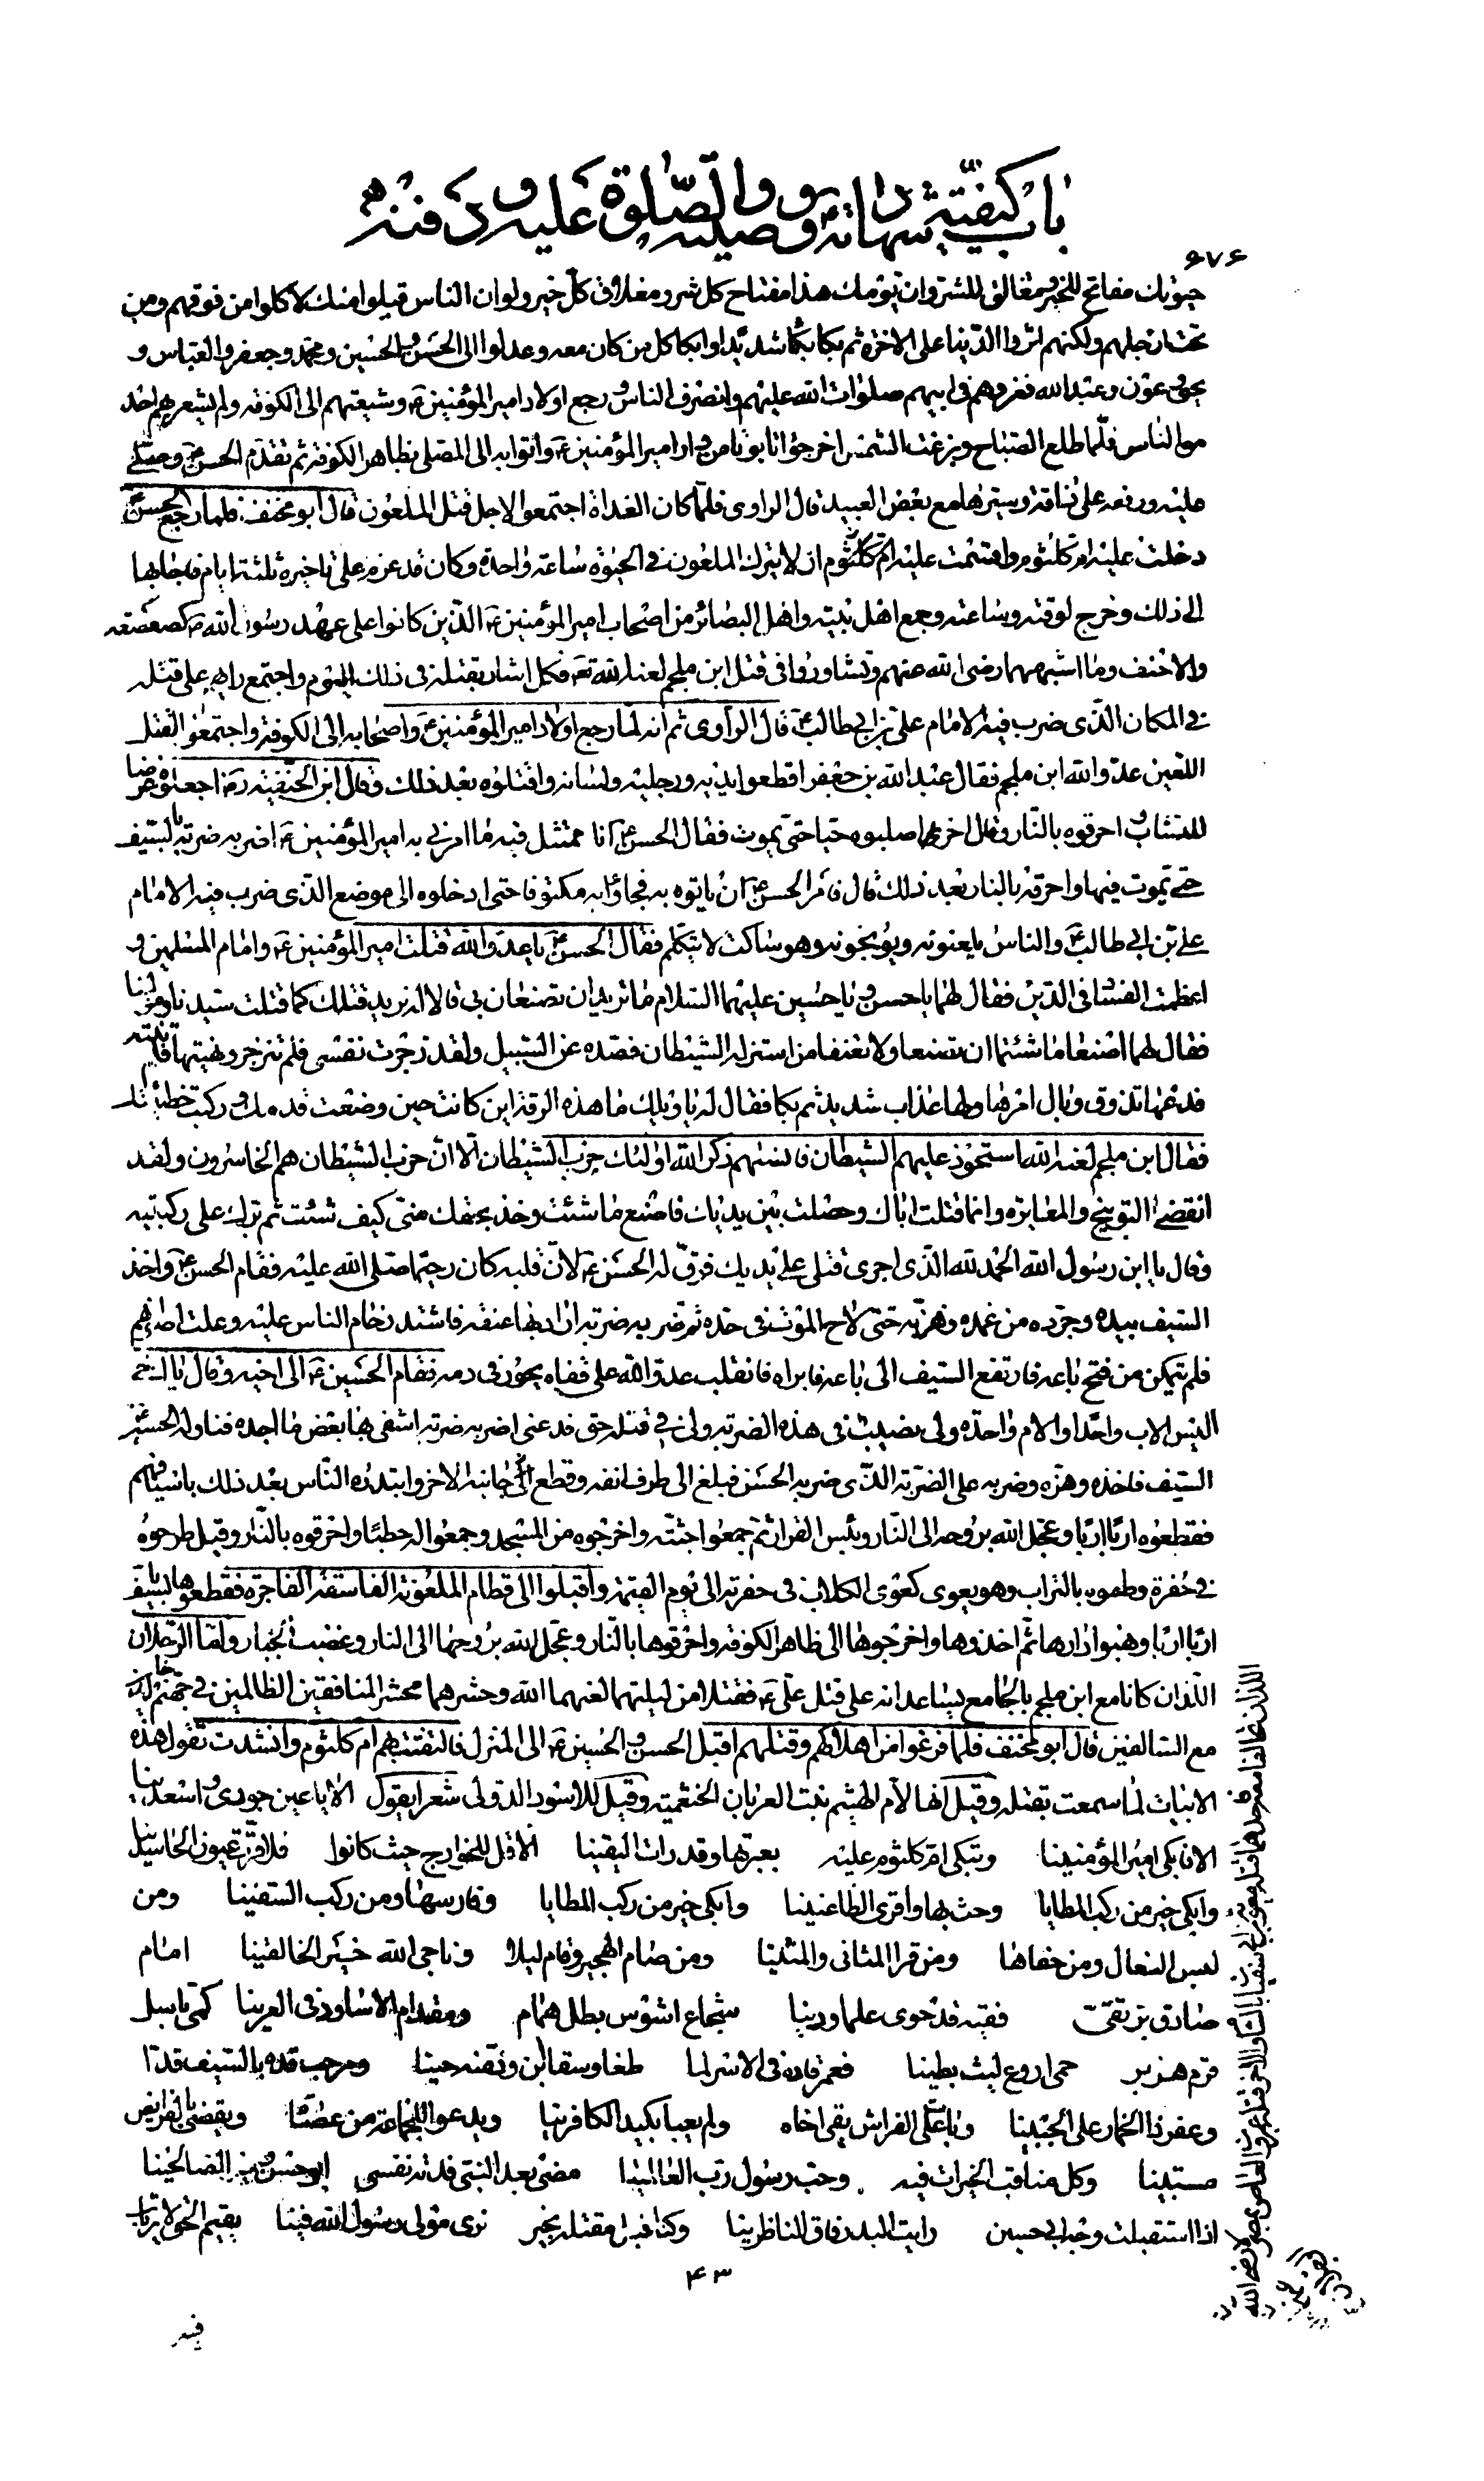 باب كيفيّة شهادته ووصيته والصّلوة عليه ودفنه
۶۷۶
حيوتك مفاتح للخير ومغالق للشرّ وان يومك هذا مفتاح كل شر ومغلاق كلّ خير ولو ان الناس قبلوا منك لأكلوا من فوقهم ومن
تحت ارجلهم ولكنهم اثروا الدّنيا على الاخرة ثم بكا بكاء شديدا وابكا كل من كان معه وعدلوا الى الحسن والحسين ومحمّد وجعفر والعباس و
يحيى وعون وعبد الله فعزوهم في ابيهم صلوات الله عليهم وانصرف الناس ورجع اولاد امير المؤمنين ع وشيعتهم الى الكوفة ولم يشعر بهم احد
من الناس فلمّا طلع الصّباح وبزغت الشمس اخرجوا تابوتا من دار امير المؤمنين ع واتوا به الى المصلى بظاهر الكوفة ثم تقدّم الحسن ع وصلّى
عليه ورفعه على ناقة وسيرها مع بعض العبيد قال الراوى فلمّا كان الغداة اجتمعوا لاجل قتل الملعون قال ابو مخنف فلما رجع الحسن ع
دخلت عليه ام كلثوم واقسمت عليه ان لا يترك الملعون في الحيوة ساعة واحدة وكان قد عزم على تاخيره ثلثة ايام فاجابها
الى ذلك وخرج لوقته وساعته وجمع اهل بيته واهل البصائر من اصحاب امير المؤمنين ع الذين كانوا على عهد رسول الله ص كصعصعة
والاحنف وما اشبههما رضى الله عنهم وتشاوروا في قتل ابن ملجم لعنه الله تع فكل اشار بقتله في ذلك اليوم واجتمع رايهم على قتله
في المكان الذى ضرب فيه الامام علىّ بن ابي طالب ع قال الراوى ثم انه لما رجع اولاد امير المؤمنين ع واصحابه الى الكوفة واجتمعوا لقتل
اللعين عدو الله ابن ملجم فقال عبد الله بن جعفر اقطعوا يديه ورجليه ولسانه واقتلوه بعد ذلك وقال ابن الحنفية رض اجعلوه غرضا
للنشاب واحرقوه بالنار وقال اخر اصلبوه حيا حتى يموت فقال الحسن ع انا ممتثل فيه ما امرني به امير المؤمنين ع اضربه ضربة بالسيف
حتى يموت فيها واحرقه بالنار بعد ذلك قال فامر الحسن ع ان ياتوه به فجاؤا به مكتوفا حتى ادخلوه الى موضع الذى ضرب فيه الامام
على بن ابي طالب ع والناس يلعنونه ويوبخونه وهو ساكت لا يتكلم فقال الحسن ع يا عدو الله قتلت امير المؤمنين ع وامام المسلمين و
اعظمت الفساد في الدين فقال لهما يا حسن ويا حسين عليهما السلام ما تريدان تصنعان بي قالا له نريد قتلك كما قتلت سيدنا ومولينا
فقال لهما اصنعا ما شئتما ان تصنعا ولا تعنفا من استزله الشيطان فصده عن السبيل ولقد زجرت نفسي فلم تنزجر ونهيتها فلم تنته
فدعها تذوق وبال امرها ولها عذاب شديد ثم بكا فقال له يا ويلك ما هذه الرقة اين كانت حين وضعت قدمك وركبت خطيئتك
فقال ابن ملجم لعنه الله استحوذ عليهم الشيطان فانسيهم ذكر الله اولئك حزب الشيطان الا انّ حزب الشيطان هم الخاسرون ولقد
انقضى التوبيخ والمعايرة وانما قتلت اباك وحصلت بين يديك فاصنع ما شئت وخذ بحقك منى كيف شئت ثم برك على ركبتيه
وقال يا ابن رسول الله الحمد لله الذى اجرى قتلى على يديك فرقّ له الحسن ع لانّ قلبه كان رحيما صلى الله عليه فقام الحسن ع واخذ
السيف بيده وجرده من غمده وهزّ به حتى لاح الموت في حده ثم ضربه ضربة ادار بها عنقه فاشتد زحام الناس عليه وعلت اصواتهم
فلم يتمكن من فتح باعه فارتفع السيف الى باعه فابراه فانقلب عدو الله على قفاه يحور في دمه فقام الحسين ع الى اخيه وقال يا اخى
اليس الاب واحدا والام واحدة ولى نصيب في هذه الضربة ولى في قتله حق فدعنى اضربه ضربة اشفى بها بعض ما اجده فناوله الحسن ع
السيف فاخذه وهزّه وضربه على الضربة الذى ضربه الحسن فبلغ الى طرف انفه وقطع جانبه الاخر وابتدره الناس بعد ذلك باسيافهم
فقطعوه اربا اربا وعجل الله بروحه الى النار وبئس القرار ثم جمعوا جثته واخرجوه من المسجد وجمعوا له حطبا واحرقوه بالنار وقيل طرحوه
في حفرة وطموه بالتراب وهو يعوى كعوى الكلاب في حفرته الى يوم القيمة واقبلوا الى قطام الملعونة الفاسقة الفاجرة فقطعوها بالسيف
اربا اربا ونهبوا دارها ثم اخذوها واخرجوها الى ظاهر الكوفة واحرقوها بالنار وعجل الله بروحها الى النار وغضب الجبار واما الرجلان
اللّذان كانا مع ابن ملجم بالجامع يساعدانه على قتل علىّ ع فقتلا من ليلتهما لعنهما الله وحشرهما محشر المنافقين الظالمين في جهنم خالدين
مع السالفين قال ابو مخنف فلما فرغوا من اهلاكهم وقتلهم اقبل الحسن والحسين ع الى المنزل فالتفت بهم ام كلثوم وانشدت تقول هذه
الابيات لما سمعت بقتله وقيل انها لام الهيثم بنت العربان الخثعمية وقيل للاسود الدؤلى شعر يقول الا يا عين جودى واسعدينا
الا فابكى امير المؤمنينا وتبكى ام كلثوم عليه بعبرتها وقد رات اليقينا الا قل للخوارج حيث كانوا فلا قرت عيون الحاسدينا
وابكى خير من ركب المطايا وحث بها واقرى الظاعنينا وابكى خير من ركب المطايا وفارسها ومن ركب السفينا ومن
لبس النعال ومن حفاها ومن قرا المثانى والمئينا ومن صام الهجير وقام ليلا وناجى الله خير الخالقينا امام
صادق بر تقىّ فقيه قد حوى علما ودينا شجاع اشوس بطل همام ومقدام الاساود في العرينا كمىّ باسل
قرم هزبر حمى اروع ليث بطينا فعمرو قاده في الاسر لما طغا وسقا ابن ود منه حينا ومرحب قده بالسيف قدّا
وعفر ذا الخمار على الجبينا وبات على الفراش يقى اخاه ولم يعبا بكيد الكافرينا ويدعو للجماعة من عصاه ويقضى بالفرايض
مستبينا وكل مناقب الخيرات فيه وحب رسول رب العالمينا مضى بعد النبى فدته نفسى ابو حسن وخير الصالحينا
اذا استقبلت وجه ابي حسين رايت البدر فاق الناظرينا وكنا قبل مقتله بخير نرى مولى رسول الله فينا يقيم الحق لا يرتاب
۴۳
فيه